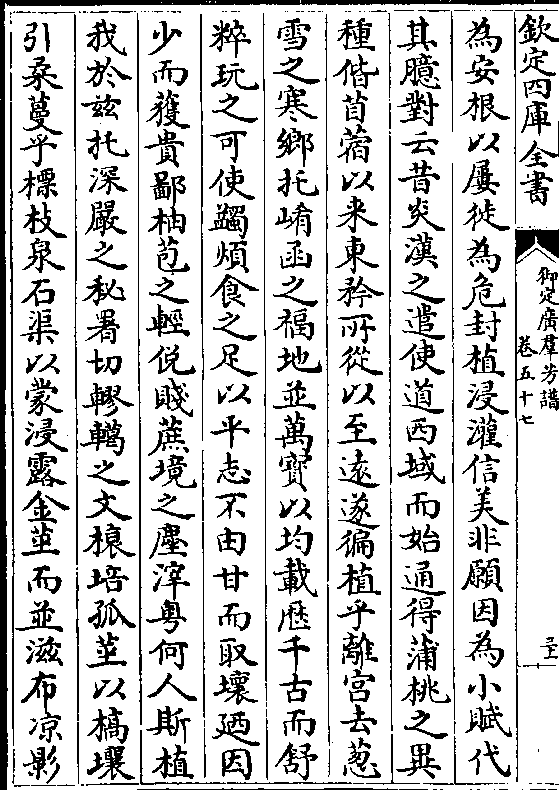 欽定四庫全書
御定廣羣芳譜
卷五十七
為安根以屢徙為危封植浸灌信美非願因為小賦代
其臆對云昔炎漢之遣使道西域而始通得蒲桃之異
種偕苜蓿以来東矜所從以至逺遂徧植乎離宫去葱
雪之寒鄉托崤函之福地並萬寳以均載歴千古而舒
粹玩之可使蠲煩食之足以平志不由甘而取壞廼因
少而獲貴鄙柚苞之輕侻賤蔗境之塵滓粤何人斯植
我於兹托深嚴之秘署切轇轕之文榱培孤莖以槁壤
引柔蔓乎標枝泉石渠以蒙浸露金莖而並滋布凉影